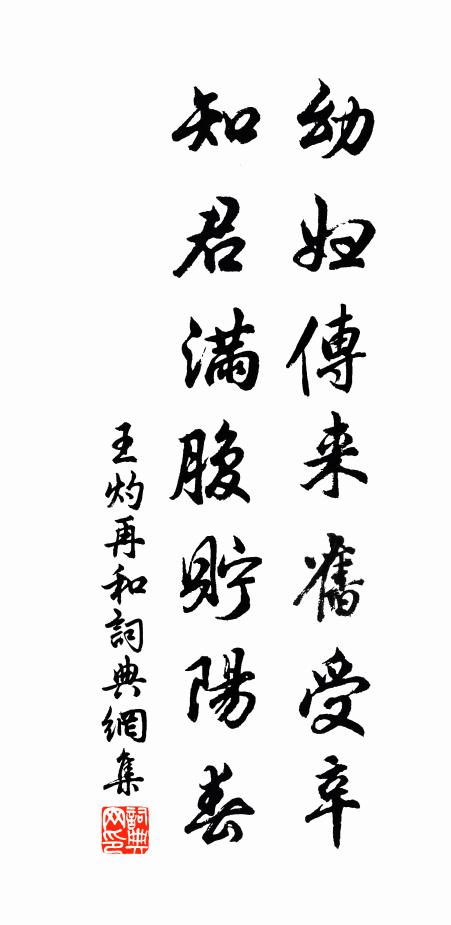 幼婦傳来舊受辛
知君滿腹貯陽春
王灼再和詞典網集
詞典網印